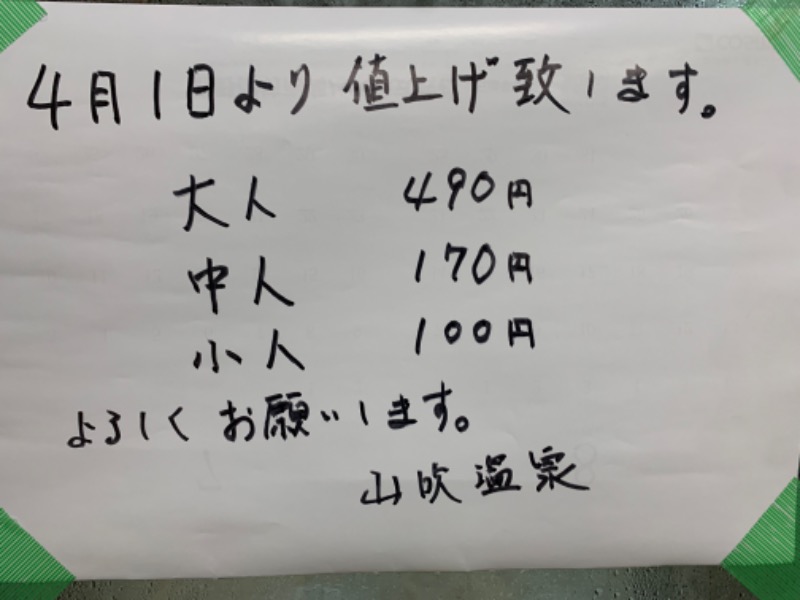 4月1日より値上げ致します。
大人 490円
中人 170円
小人 100円
よろしくお願いします。
山吹温泉